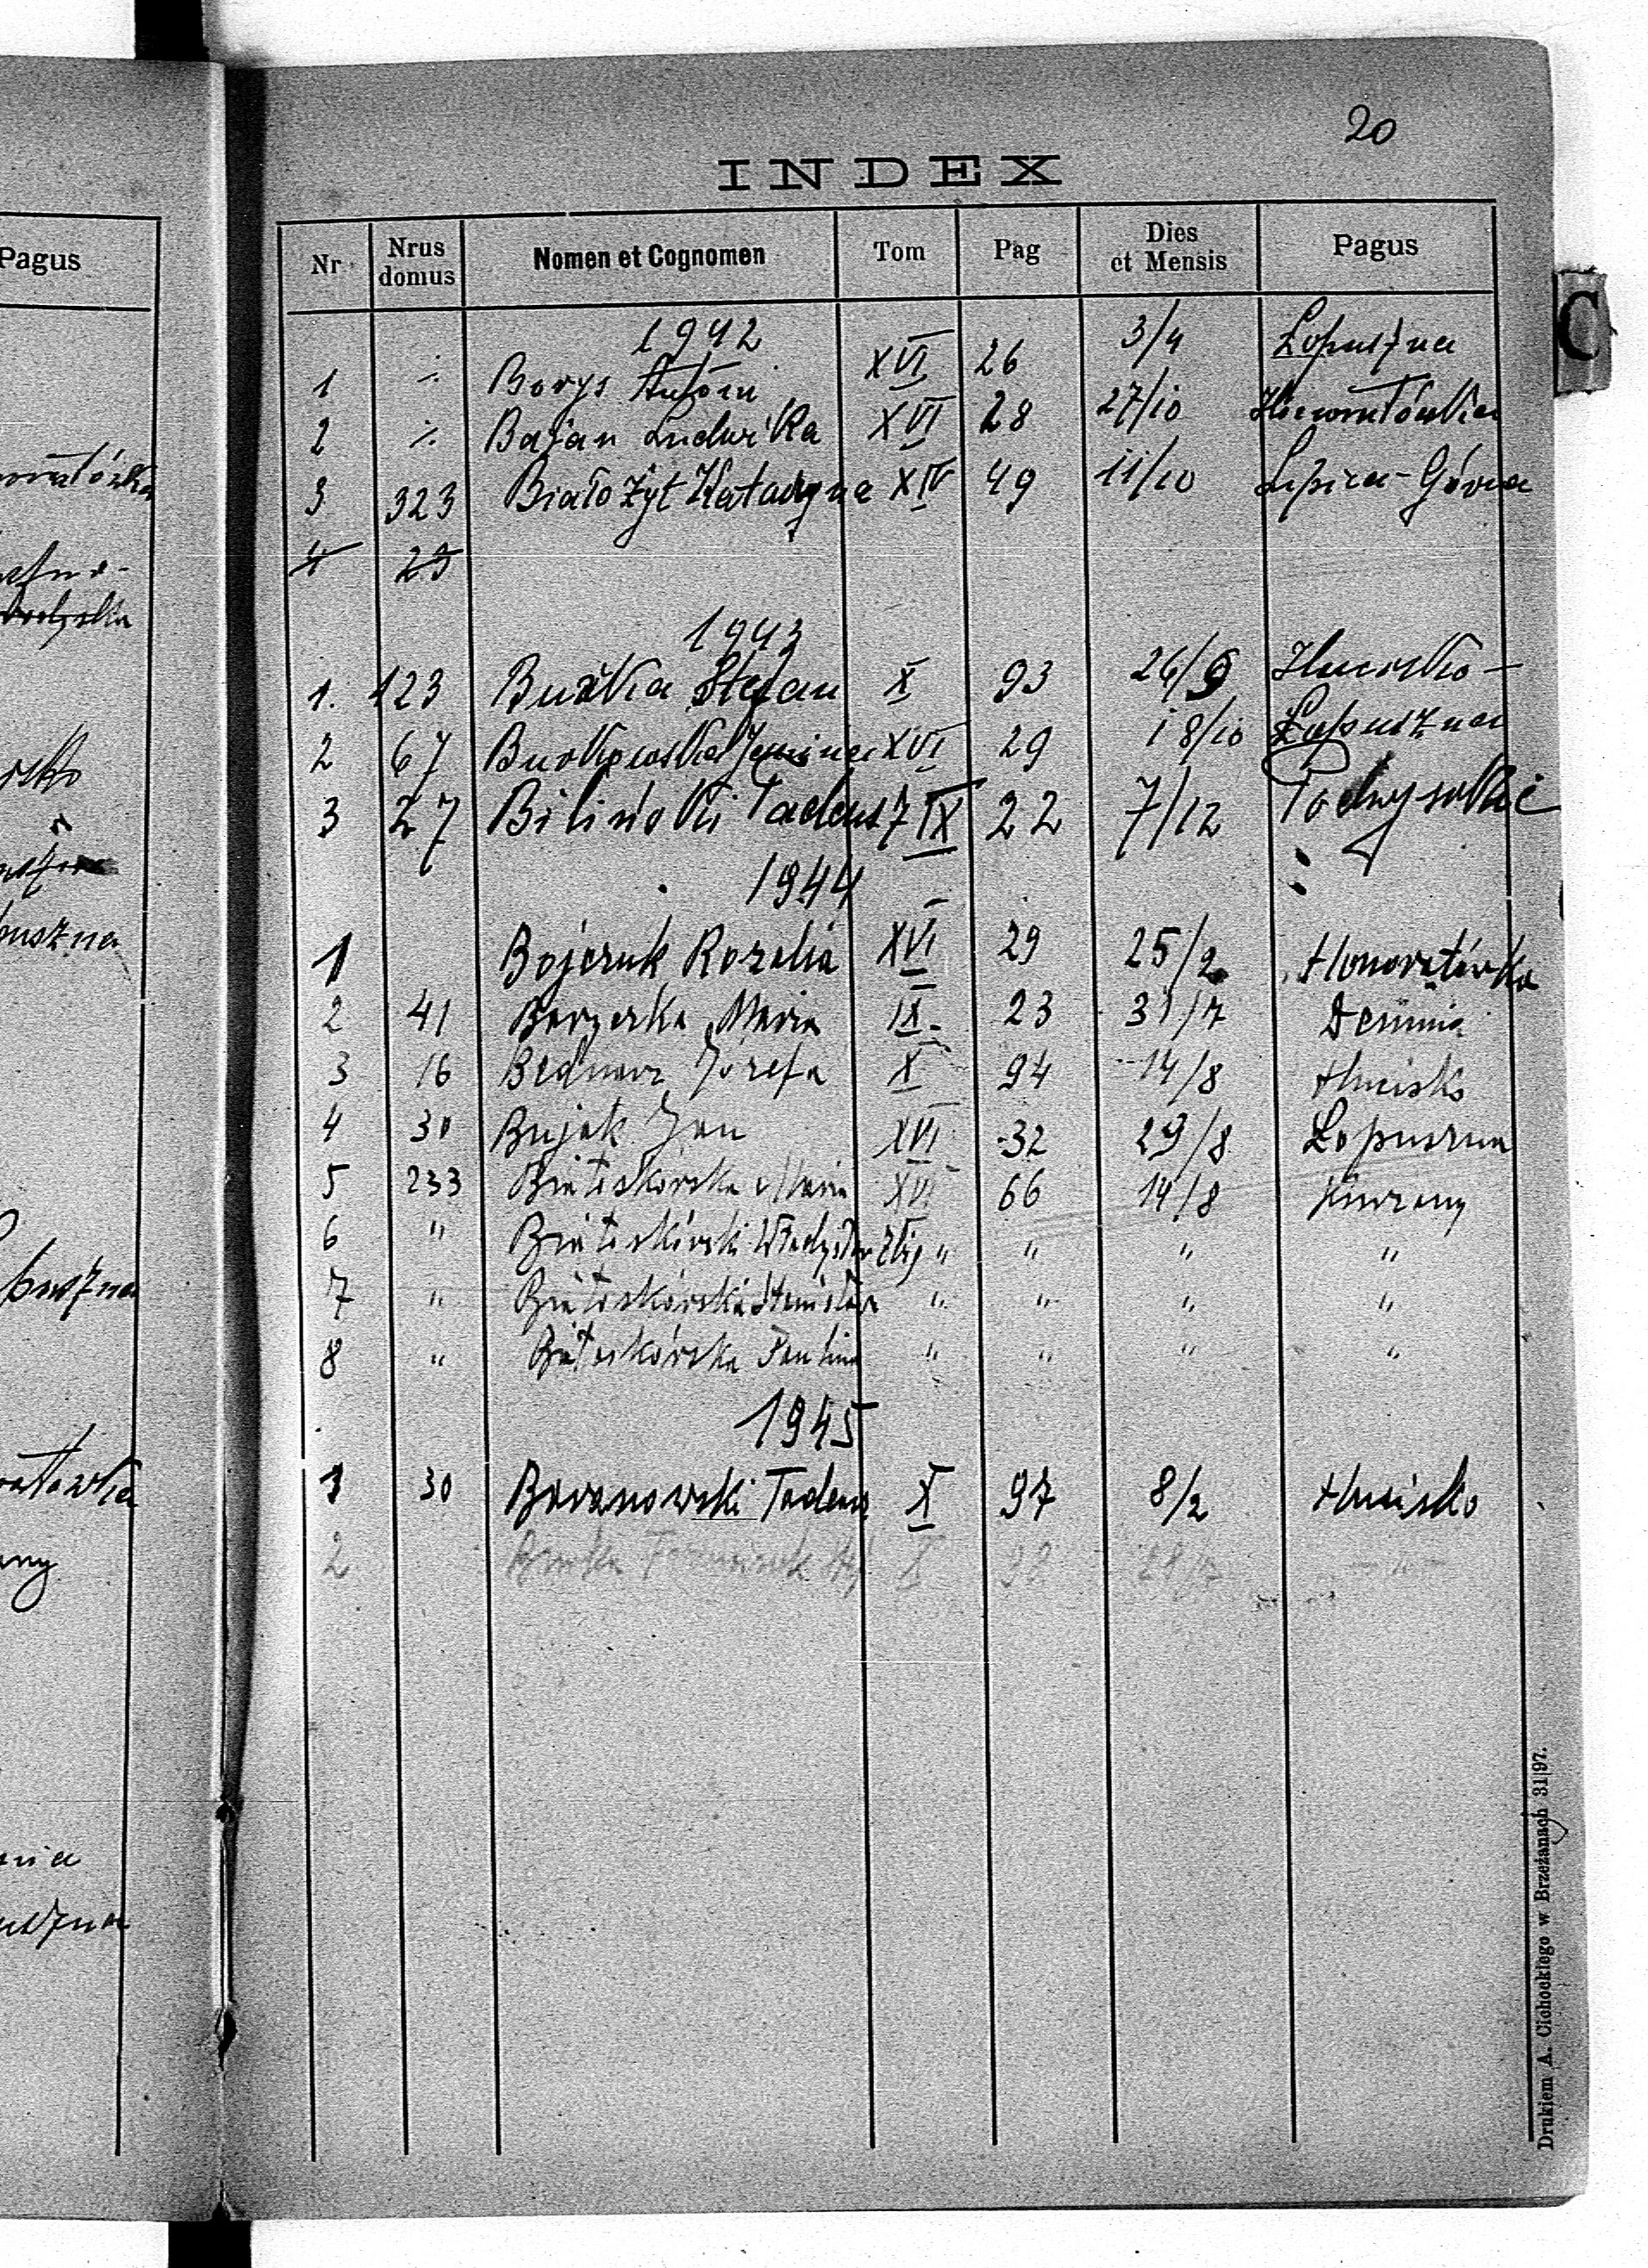 20
INDEX
Pagus
Nr Nrus domus Nomen et Cognomen Tom Pag Dies et Mensis Pagus
1942
1 ./. Borys Antoni XVI 26 3/4 Łopuszna
2 ./. Bajan Ludwika XVI 28 27/10 Honoratówka
3 323 Białożyt Katarzyna XIV 49 11/10 Lipica-Górna
4 23
1943
1. 123 Buźka Stefan X 93 26/9 Hucisko-
2 67 XVI 29 18/10 Łopuszna
3 27 Biliński Tadeusz IX 22 7/12 Podwysokie
1944
1 Bojczuk Rozalia XVI 29 25/2 Honoratówka
2 41 Maria IX 23 31/7 Demnia
3 16 Bednarz Józefa X 94 14/8 Hucisko
4 30 Bujak Jan XVI 32 29/8 Łopuszna
5 233 Białoskórska Maria XVI 66 14/8 Kurzany
6 " Białoskórski Władysław Zbig " " " "
7 " Białoskórski Stanisław " " " "
8 " Białoskórska Paulina " " " "
1945
1 30 Baranowski Tadeusz X 97 8/2 Hucisko
2 Franciszek X - " -
puszna
Drukiem A. Cichockiego w Brzeżanach 31|97.
C